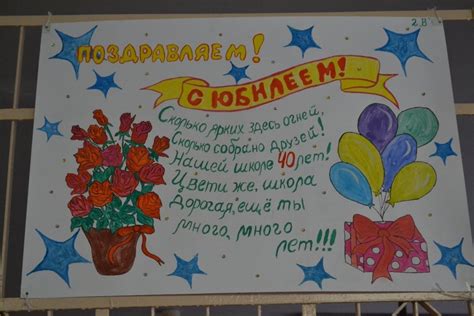 2.В"
ПОЗДРАВЛЯЕМ!
С ЮБИЛЕЕМ!
Сколько ярких здесь огней,
Сколько собрано друзей!
Нашей школе 40 лет!
Цвети же, школа
Дорогая, ещё ты
много, много
лет!!!